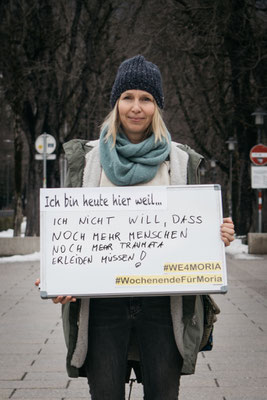 Ich bin heute hier weil...
ICH NICHT WILL, DASS
NOCH MEHR MENSCHEN
NOCH MEHR TRAUMATA
ERLEIDEN MÜSSEN!
#WE4MORIA
#WochenendeFürMoria